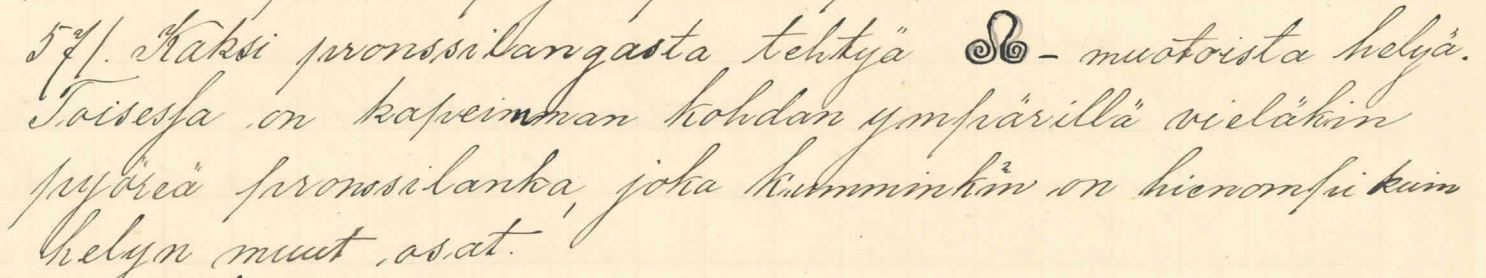 571. Kaksi pronssilangasta tehtyä - muotoista helyä.
Toisessa on kapeimman kohdan ympärillä vieläkin
pyöreä pronssilanka, joka kumminkin on hienompi kuin
helyn muut osat.